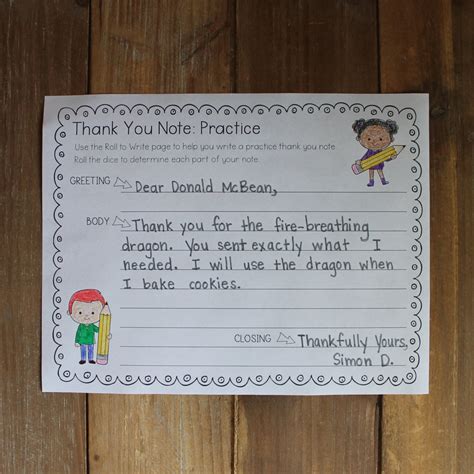 Thank You Note: Practice
Use the Roll to Write page to help you write a practice thank you note
Roll the dice to determine each part of your note.
GREETING Dear Donald McBean,
BODY Thank you for the fire-breathing
dragon. You sent exactly what I
needed. I will use the dragon when
I bake cookies.
CLOSING Thankfully Yours,
Simon D.